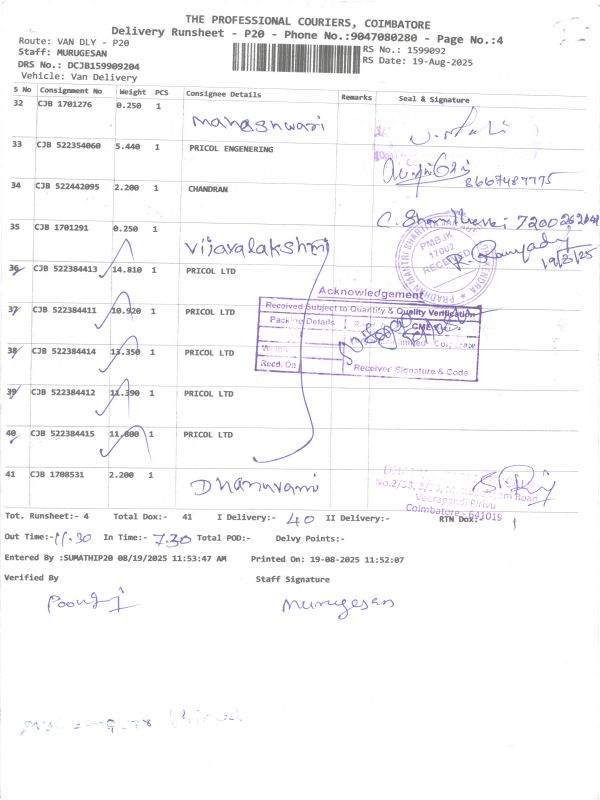 THE PROFESSIONAL COURIERS, COIMBATORE
Delivery Runsheet - P20 - Phone No.:9047080280 - Page No.:4
Route: VAN DLY - P20
RS No.: 1599092
Staff: MURUGESAN
RS Date: 19-Aug-2025
DRS No.: DCJB159909204
Vehicle: Van Delivery
S No Consignment No Weight PCS Consignee Details Remarks Seal & Signature
32 CJB 1701276 0.250 1 Maheshwari
33 CJB 522354060 5.440 1 PRICOL ENGENERING
8667487775
34 CJB 522442095 2.200 1 CHANDRAN
35 CJB 1701291 0.250 1 Vijayalakshmi
PMBJK
17002
RECEIVED
19/8/25
36 CJB 522384413 14.810 1 PRICOL LTD
Acknowledgement
Received Subject to Quantity & Quality Verification
37 CJB 522384411 10.920 1 PRICOL LTD
Packing Details
38 CJB 522384414 13.350 1 PRICOL LTD
Recd. On
Received Signature & Code
39 CJB 522384412 11.390 1 PRICOL LTD
40 CJB 522384415 11.800 1 PRICOL LTD
41 CJB 1708531 2.200 1
Veerapandi Pirivu
Coimbatore - 641019
Tot. Runsheet:- 4 Total Dox:- 41 I Delivery:- 40 II Delivery:- RTN Dox:- 1
Out Time:- 11.30 In Time:- 7.30 Total POD:- Delvy Points:-
Entered By :SUMATHIP20 08/19/2025 11:53:47 AM Printed On: 19-08-2025 11:52:07
Verified By Staff Signature
Murugesan